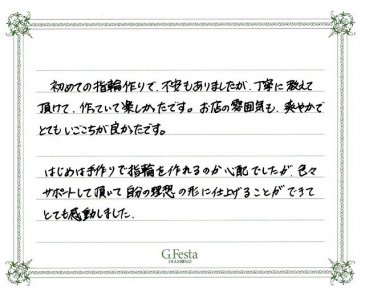 初めての指輪作りで、不安もありましたが、丁寧に教えて
頂けて、作っていて楽しかったです。お店の雰囲気も、爽やかで
とてもいごこちが良かったです。
はじめは手作りで指輪を作れるのか心配でしたが、色々
サポートして頂いて自分の理想の形に仕上げることができて
とても感動しました。
G.Festa
DIAMOND